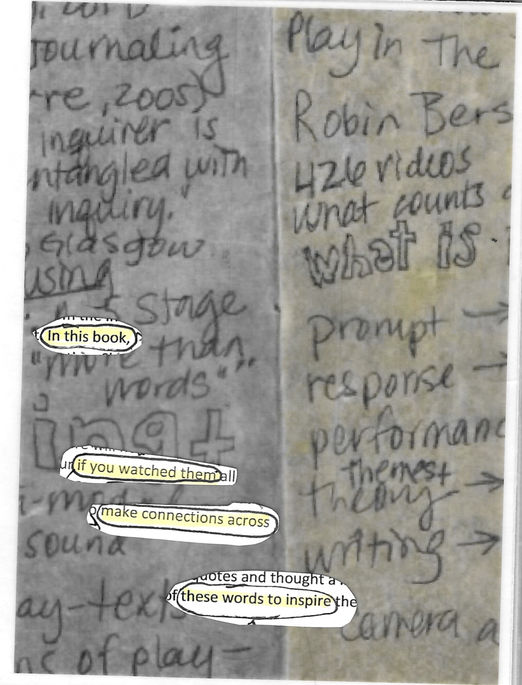 Journaling
re, 2005)
inquirer is
ntangled with
inquiry.
Glasgow
using
Stage
In this book,
"more than
words"..
ing+
if you watched them all
make connections across
sound
uotes and thought a
of these words to inspire the
ay-texts
ns of play-
Play in The
Robin Bers
426 videos
what counts
what is
prompt →
response →
performanc
themes+
theory →
writing →
camera a